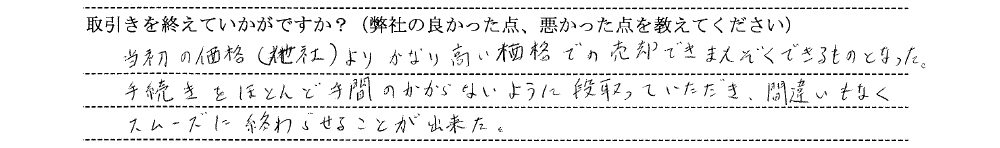 取引きを終えていかがですか？（弊社の良かった点、悪かった点を教えてください）
当初の価格（他社）よりかなり高い価格での売却できまんぞくできるものとなった。
手続きをほとんど手間のかからないように段取っていただき、間違いもなく
スムーズに終わらせることが出来た。